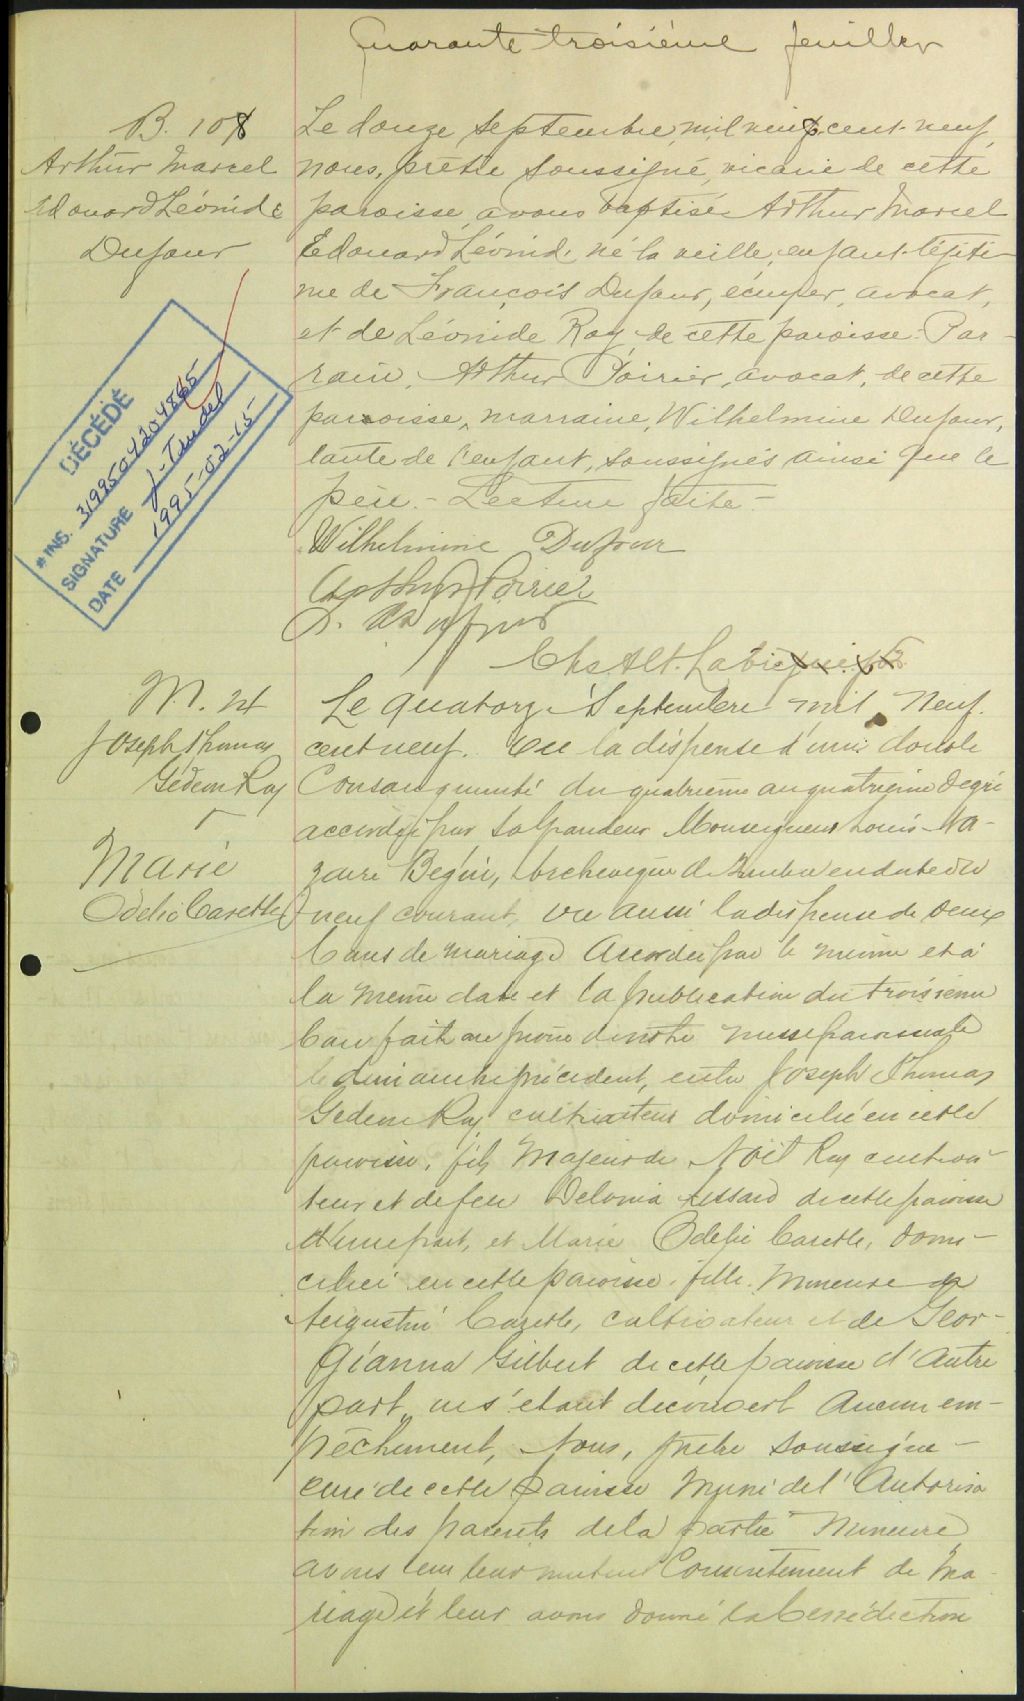 Quarante troisième feuillet
B. 108
Arthur Marcel
Edouard Léonide
Dufour
Le douze septembre mil neuf cent neuf,
nous, prêtre soussigné, vicaire de cette
paroisse avons baptisé Arthur Marcel
Edouard Léonide né la veille, enfant légiti-
me de François Dufour, écuyer, avocat,
et de Léonide Roy de cette paroisse. Par-
rain, Arthur Poirier, avocat, de cette
paroisse, marraine, Wilhelmine Dufour,
tante de l'enfant, soussignés ainsi que le
père - Lecture faite -
Wilhelmine Dufour
Arthur Poirier
Chs Alf.
DÉCÉDÉ
# INS. 3199504204865
SIGNATURE J. Taudel
DATE 1995-02-15
M. 24
Joseph Thomas
Gédéon Roy
Marie
Odélie Carette
Le quatorze Septembre mil neuf
cent neuf. Vu la dispense d'une double
Consanguinité du quatrième au quatrième degré
accordée par Sa Grandeur Monseigneur Louis-Na-
zaire Bégin, Archevêque de Québec en date du
neuf courant, vu aussi la dispense de deux
bans de mariage accordée par le même et à
la même date et la publication du troisième
ban faite au prône de notre messe paroissiale
le dimanche précédent, entre Joseph Thomas
Gédéon Roy cultivateur domicilié en cette
paroisse, fils majeur de Noël Roy cultiva-
teur et de feue Delvina Lessard de cette paroisse
d'une part, et Marie Odélie Carette, domi-
ciliée en cette paroisse, fille mineure de
Augustin Carette, cultivateur et de Geor-
gianna Gilbert de cette paroisse d'autre
part, ne s'étant découvert aucun em-
pêchement, Nous, prêtre soussigné
curé de cette paroisse muni de l'autorisa
tion des parents de la partie mineure
avons reçu leur mutuel Consentement de Ma-
riage et leur avons donné la bénédiction